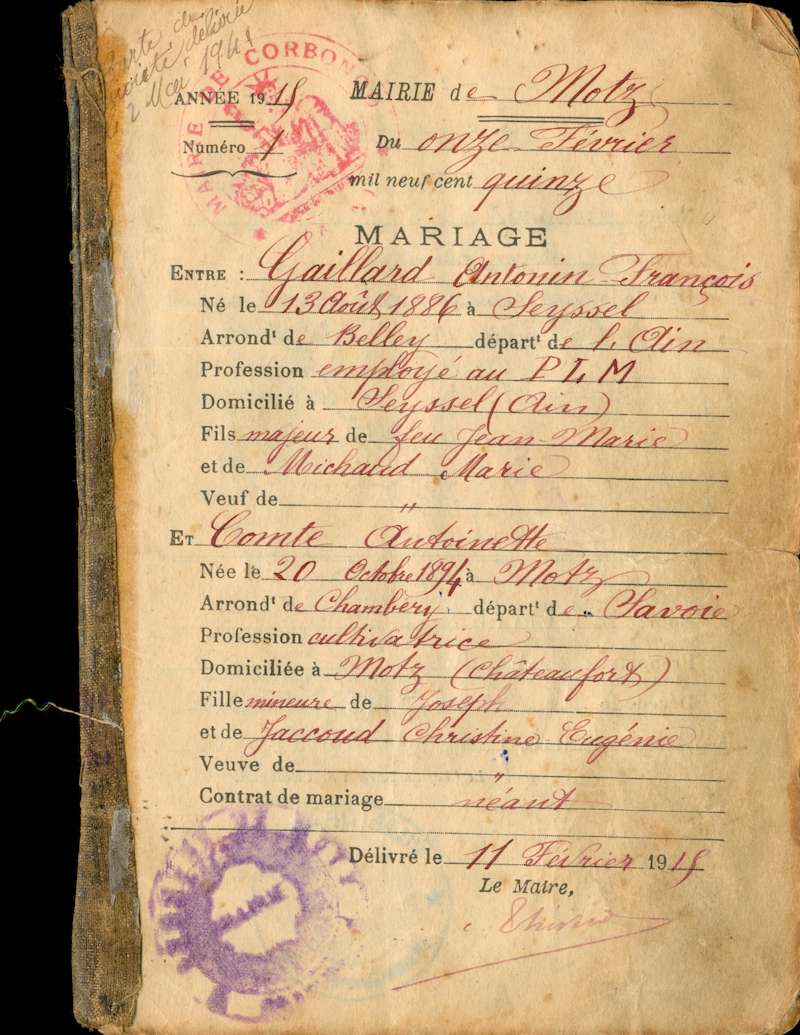 Carte de
délivrée
2 Mai 1941
ANNÉE 1915
MAIRIE DE CORBONOD
MAIRIE de Motz
Numéro 1
Du onze Février
mil neuf cent quinze
MARIAGE
ENTRE : Gaillard Antonin François
Né le 13 Août 1886 à Seyssel
Arrondt de Belley départt de l'Ain
Profession employé au P L M
Domicilié à Seyssel (Ain)
Fils majeur de feu Jean-Marie
et de Michaud Marie
Veuf de "
ET Comte Antoinette
Née le 20 Octobre 1894 à Motz
Arrondt de Chambéry départt de Savoie
Profession cultivatrice
Domiciliée à Motz (Châteaufort)
Fille mineure de Joseph
et de Jaccoud Christine Eugénie
Veuve de "
Contrat de mariage néant
Délivré le 11 Février 1915
Le Maire,
MAIRIE DE MOTZ
MAIRIE